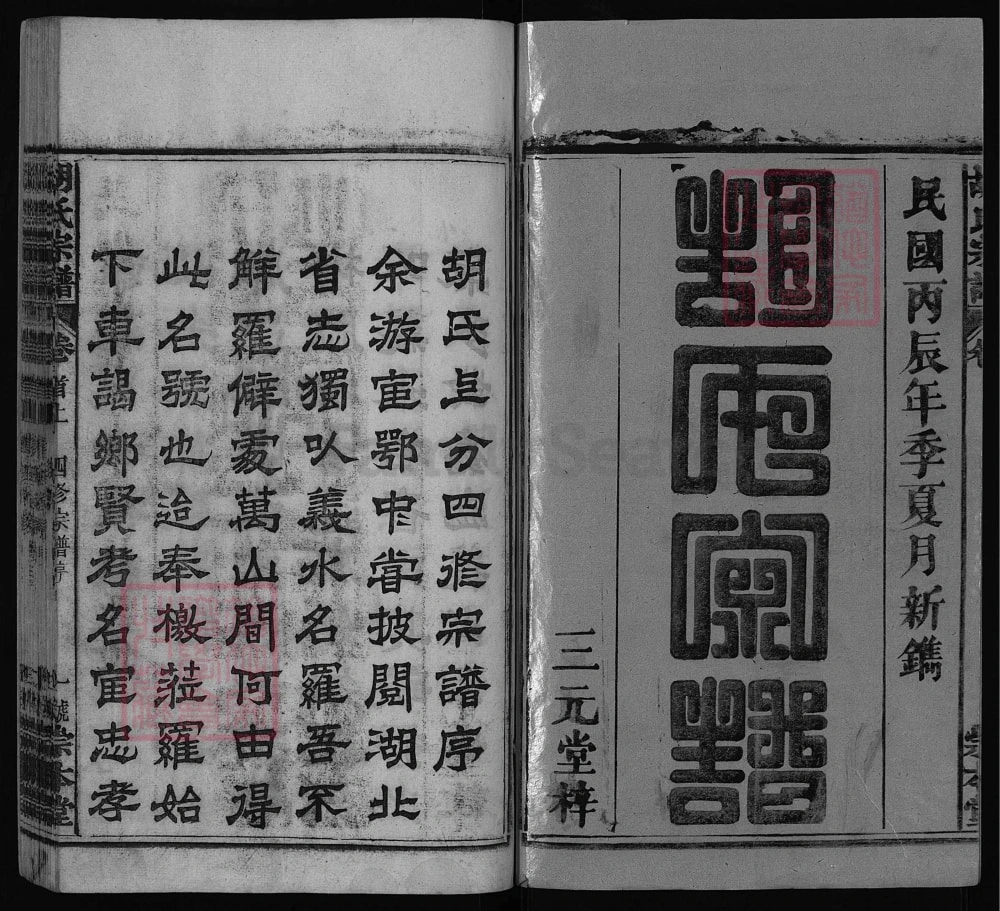 民國丙辰年季夏月新鐫
胡氏宗譜
三元堂梓
胡氏三分四修宗譜序
余游宦鄂中嘗披閱湖北
省志獨以義水名羅吾不
解羅僻處萬山間何由得
此名號也迨奉檄蒞羅始
下車謁鄉賢考名宦忠孝
胡氏宗譜 卷首上 四修宗譜序 崇本堂